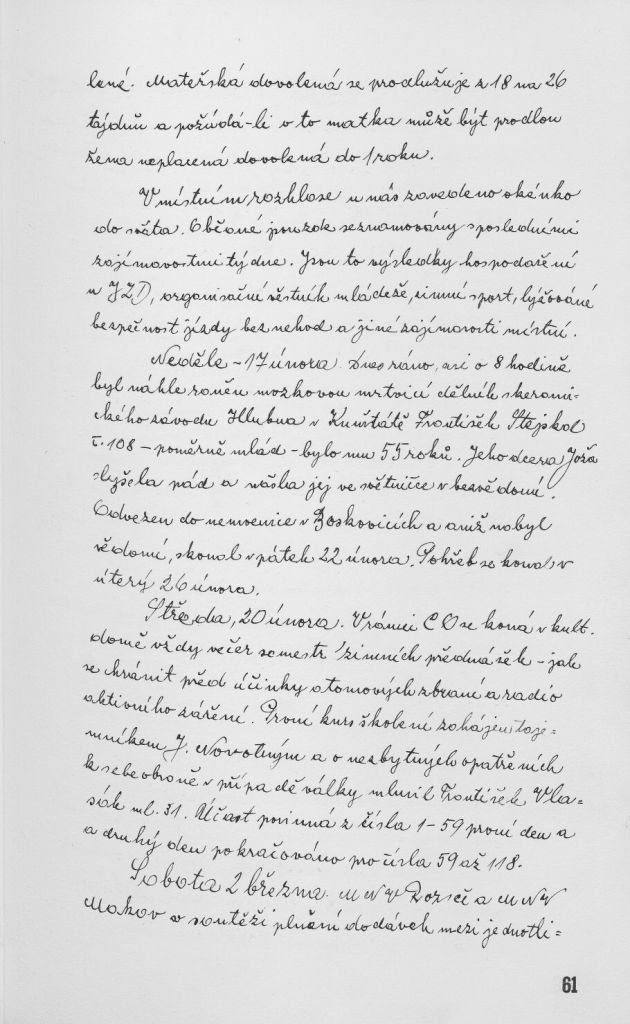 lené. Mateřská dovolená se prodlužuje z 18 na 26
týdnů a požádá-li o to matka může být prodlou
žena neplacená dovolená do 1 roku.
V místním rozhlase u nás zavedeno okénko
do světa. Občané jsou zde seznamovány s posledními
zajímavostmi týdne. Jsou to výsledky hospodaření
u JZD, organisační věstník mládeže, zimní sport, lyžování
bezpečnost jízdy bez nehod a jiné zajímavosti místní.
Neděle - 17 února. Dnes ráno, asi o 8 hodině
byl náhle raněn mozkovou mrtvicí dělník kerami-
ckého závodu Hlubna v Kunštátě František Stejskal
č. 108 - poměrně mlád - bylo mu 55 roků. Jeho dcera Joža
slyšela pád a našla jej ve světničce v bezvědomí.
Odvezen do nemocnice v Boskovicích a aniž nabyl
vědomí, skonal v pátek 22 února. Pohřeb se konal v
úterý 26 února.
Středa, 20 února. V rámci CO se koná v kult.
domě vždy večer semestr zimních přednášek - jak
se chránit před účinky atomových zbraní a radio
aktivního záření. První kurs školení zahájen taje=
mníkem J. Novotným a o nezbytných opatřeních
k sebeobraně v případě války mluvil František Vla=
sák ml. 31. Účast povinná z čísla 1-59 první den a
a druhý den pokračováno pro čísla 59 až 118.
Sobota 2 března. MNV a MNV
Makov v soutěži plnění dodávek mezi jednotli=
61